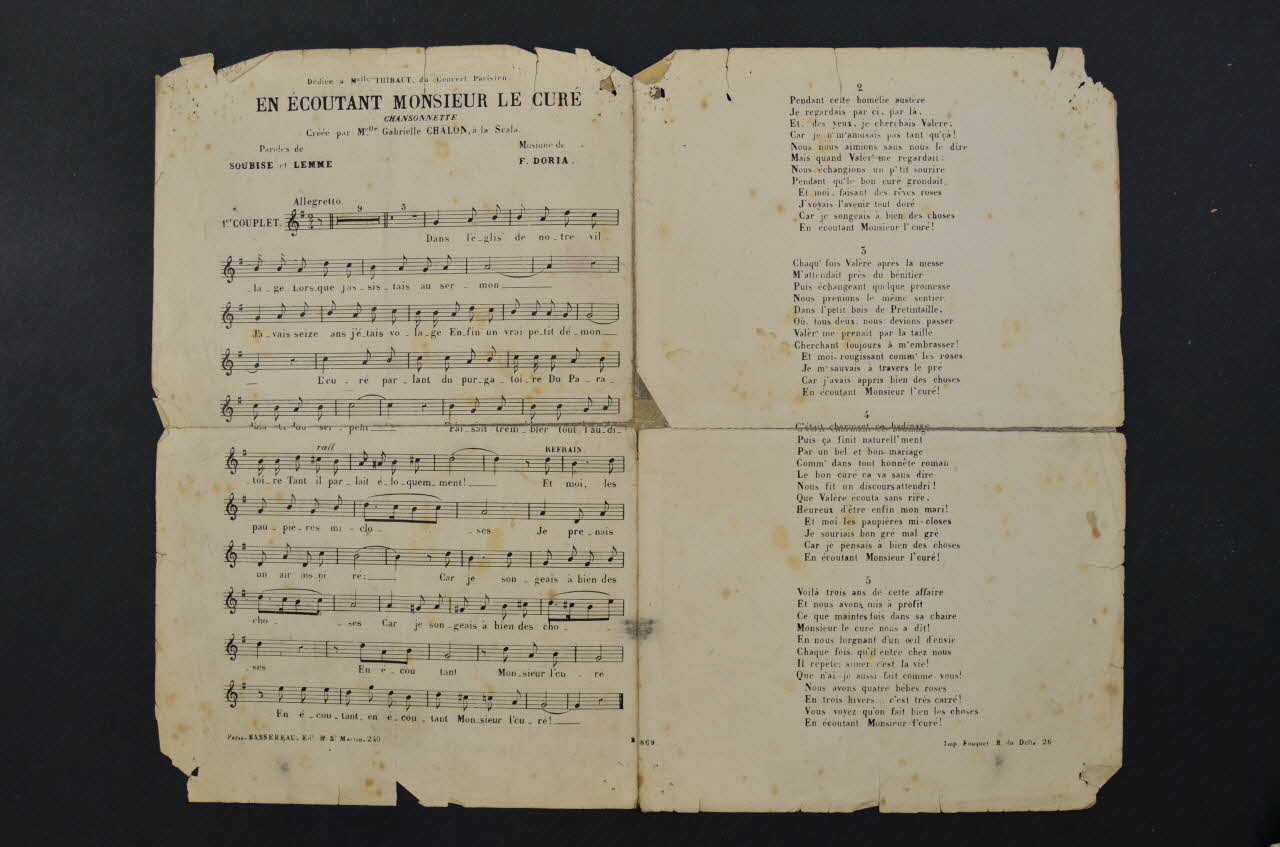 Dédiée à Melle THIBAUT, du Concert Parisien
EN ÉCOUTANT MONSIEUR LE CURÉ
CHANSONNETTE
Créée par Melle Gabrielle CHALON, à la Scala
Paroles de
SOUBISE et LEMME
Musique de
F. DORIA.
Allegretto
1er COUPLET.
9
3
Dans l'é-glis' de no-tre vil-
-la-ge Lors-que j'as-sis-tais au ser-mon
J'a-vais seize ans j'é-tais vo-la-ge En-fin un vrai pe-tit dé-mon
L'cu-ré par-lant du pur-ga-toi-re Du Pa-ra-
du ser-pent Fai-sait trem-bler tout l'au-di-
rall
REFRAIN
-toi-re Tant il par-lait é-lo-quem-ment! Et moi, les
pau-piè-res mi-clo-ses Je pre-nais
un air ins-pi-ré; Car je son-geais à bien des
cho-ses Car je son-geais à bien des cho-
-ses En é-cou-tant Mon-sieur l'cu-ré
En é-cou-tant, en é-cou-tant Mon-sieur l'cu-ré!
Paris. BASSEREAU, Edr R. St Martin, 240
B 869
2
Pendant cette homélie austère
Je regardais par ci, par là,
Et, des yeux, je cherchais Valère,
Car je n'm'annuisais pas tant qu'ça!
Nous nous aimions sans nous le dire
Mais quand Valèr' me regardait;
Nous échangions un p'tit sourire
Pendant qu'le bon curé grondait,
Et moi, faisant des rêves roses
J'voyais l'avenir tout doré
Car je songeais à bien des choses
En écoutant Monsieur l'curé!
3
Chaqu' fois Valère après la messe
M'attendait près du bénitier
Puis échangeant quelque promesse
Nous prenions le même sentier
Dans l'petit bois de Pretintaille,
Où, tous deux, nous devions passer
Valèr' me prenait par la taille
Cherchant toujours à m'embrasser!
Et moi, rougissant comm' les roses
Je m'sauvais à travers le pré
Car j'avais appris bien des choses
En écoutant Monsieur l'curé!
4
C'était charmant ce badinage
Puis ça finit naturell'ment
Par un bel et bon mariage
Comm' dans tout honnête roman
Le bon curé ça va sans dire
Nous fit un discours attendri!
Que Valère écouta sans rire,
Heureux d'être enfin mon mari!
Et moi les paupières mi-closes
Je souriais bon gré mal gré
Car je pensais à bien des choses
En écoutant Monsieur l'curé!
5
Voilà trois ans de cette affaire
Et nous avons mis à profit
Ce que maintes fois dans sa chaire
Monsieur le curé nous a dit!
En nous lorgnant d'un œil d'envie
Chaque fois, qu'il entre chez nous
Il répète; aimer, c'est la vie!
Que n'ai-je aussi fait comme vous!
Nous avons quatre bébés roses
En trois hivers... c'est très carré!
Vous voyez qu'on fait bien les choses
En écoutant Monsieur l'curé!
Imp. Fouquet R. du Delta 26